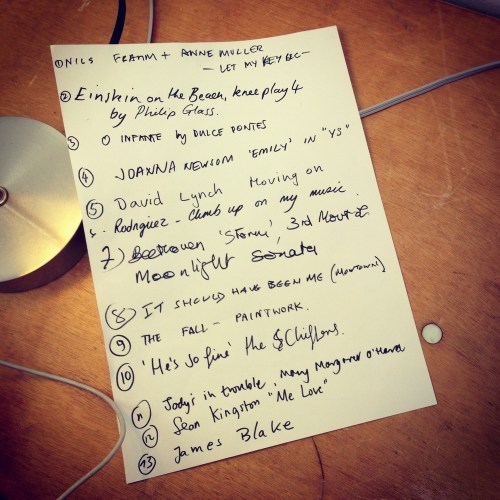 ① NILS FRAHM + ANNE MULLER
- LET MY KEY BE C -
② Einstein on the Beach, kneeplay 4
by Philip Glass.
③ O INFANTE by DULCE PONTES
④ JOANNA NEWSOM 'EMILY' IN "YS"
⑤ David Lynch Moving on
6. Rodriguez - Climb up on my music.
7) Beethoven 'Storm', 3rd
Moonlight Sonata
⑧ IT SHOULD HAVE BEEN ME (MOTOWN)
⑨ THE FALL - PAINTWORK.
⑩ 'He's so fine' the Chiffons.
11 Jody's in trouble, Mary Margaret O'Hara
⑫ Sean Kingston "Me Love"
⑬ James Blake